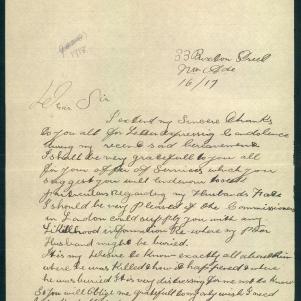 33 Buxton Street
16/17
Dear Sir
I extend my Sincere Thanks
to you all for Letter expressing Condolence
during my recent sad Bereavement
I shall be very gratefull to you all
for your offer of Services which you
suggest you will endeavour to get
particulars regarding my Husbands Fate
I should be very Pleased if the Commissioner
in London could supply you with any
Likelihood information re where my Poor
Husband might be buried.
It is my desire to know exactly all about him
where he was Killed & how it happened & where
he was buried. It is very distressing for me not to know